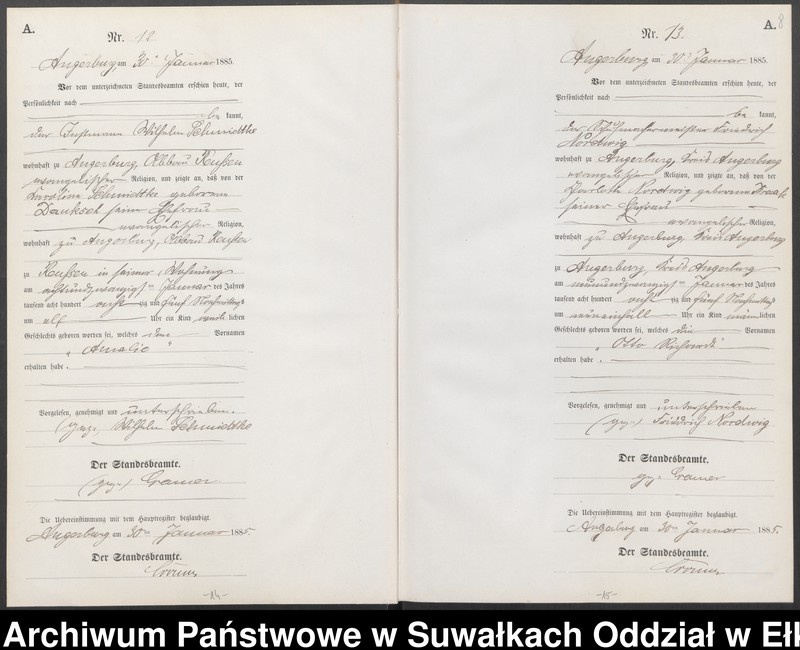 A.
Nr. 12.
Angerburg am 30ten Januar 1885.
Vor dem unterzeichneten Standesbeamten erschien heute, der
Persönlichkeit nach
be kannt,
der Instmann Wilhelm Schmidtke
wohnhaft zu Angerburg, Reußen
evangelischer Religion, und zeigte an, daß von der
Karoline Schmidtke geborenen
Danksch seiner Ehefrau
evangelischer Religion,
wohnhaft zu Angerburg, Reußen
zu Reußen in seiner Wohnung
am achtundzwanzigsten Januar des Jahres
tausend acht hundert achtzig und fünf Nachmittags
um elf Uhr ein Kind weiblichen
Geschlechts geboren worden sei, welches den Vornamen
"Amalie"
erhalten habe.
Vorgelesen, genehmigt und unterschrieben.
(gez.) Wilhelm Schmidtke
Der Standesbeamte.
(gez.) Cramer
Die Uebereinstimmung mit dem Hauptregister beglaubigt.
Angerburg am 30ten Januar 1885.
Der Standesbeamte.
Cramer
-14-
A. 8
Nr. 13.
Angerburg am 30ten Januar 1885.
Vor dem unterzeichneten Standesbeamten erschien heute, der
Persönlichkeit nach
be kannt,
der Schuhmachermeister Friedrich
Nordwig
wohnhaft zu Angerburg, Kreis Angerburg
evangelischer Religion, und zeigte an, daß von der
Nordwig geborenen
seiner Ehefrau
evangelischer Religion,
wohnhaft zu Angerburg, Kreis Angerburg
zu Angerburg, Kreis Angerburg
am neunundzwanzigsten Januar des Jahres
tausend acht hundert achtzig und fünf Nachmittags
um Uhr ein Kind männlichen
Geschlechts geboren worden sei, welches die Vornamen
"Otto Richard"
erhalten habe.
Vorgelesen, genehmigt und unterschrieben
(gez.) Friedrich Nordwig
Der Standesbeamte.
gez. Cramer
Die Uebereinstimmung mit dem Hauptregister beglaubigt.
Angerburg am 30ten Januar 1885.
Der Standesbeamte.
Cramer
-15-
Archiwum Państwowe w Suwałkach Oddział w Ełk